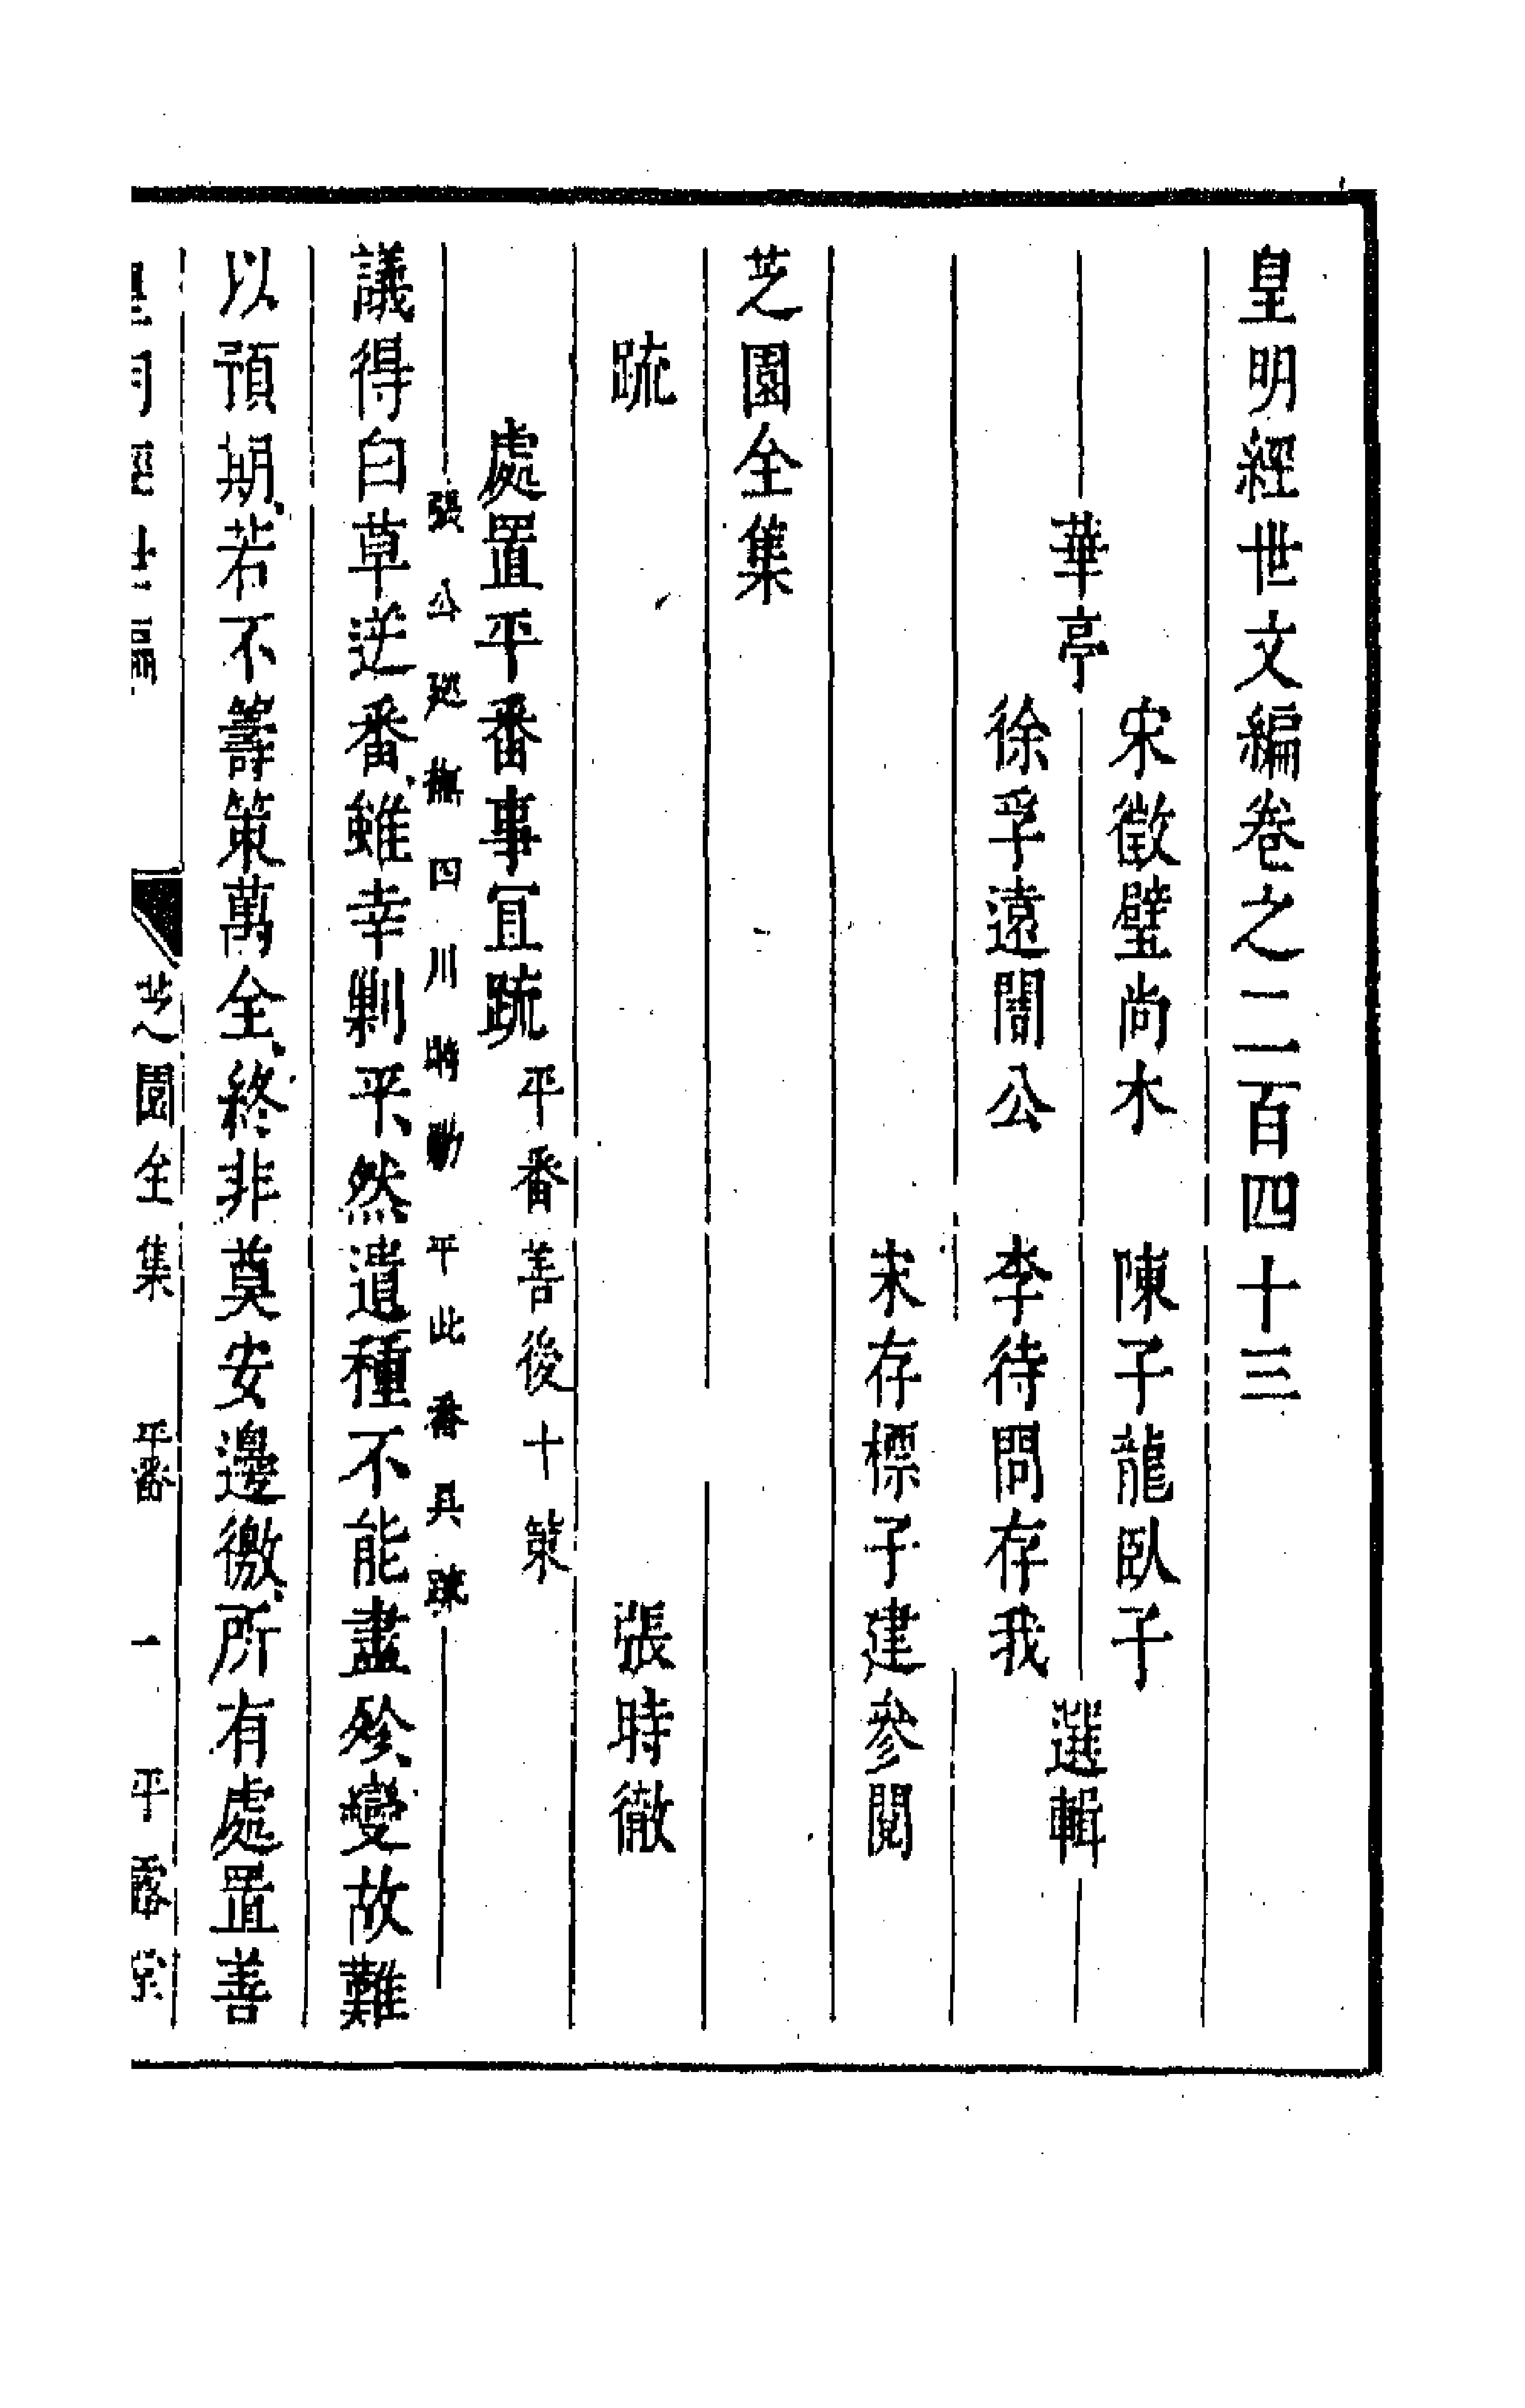 皇明經世文編卷之二百四十三
華亭
宋徵璧尚木　陳子龍臥子
徐孚遠闇公　李待問存我
選輯
宋存標子建參閱
芝園全集
䟽　張時徹
處置平番事宜䟽
平番善後十策
張公廵撫四川時勦平此番具疏
議得白草逆番雖幸剿平然遺種不能盡殄變故難
以預期若不籌策萬全終非奠安邊徼所有處置善
皇明經世文編　芝園全集　平番　一　平露堂